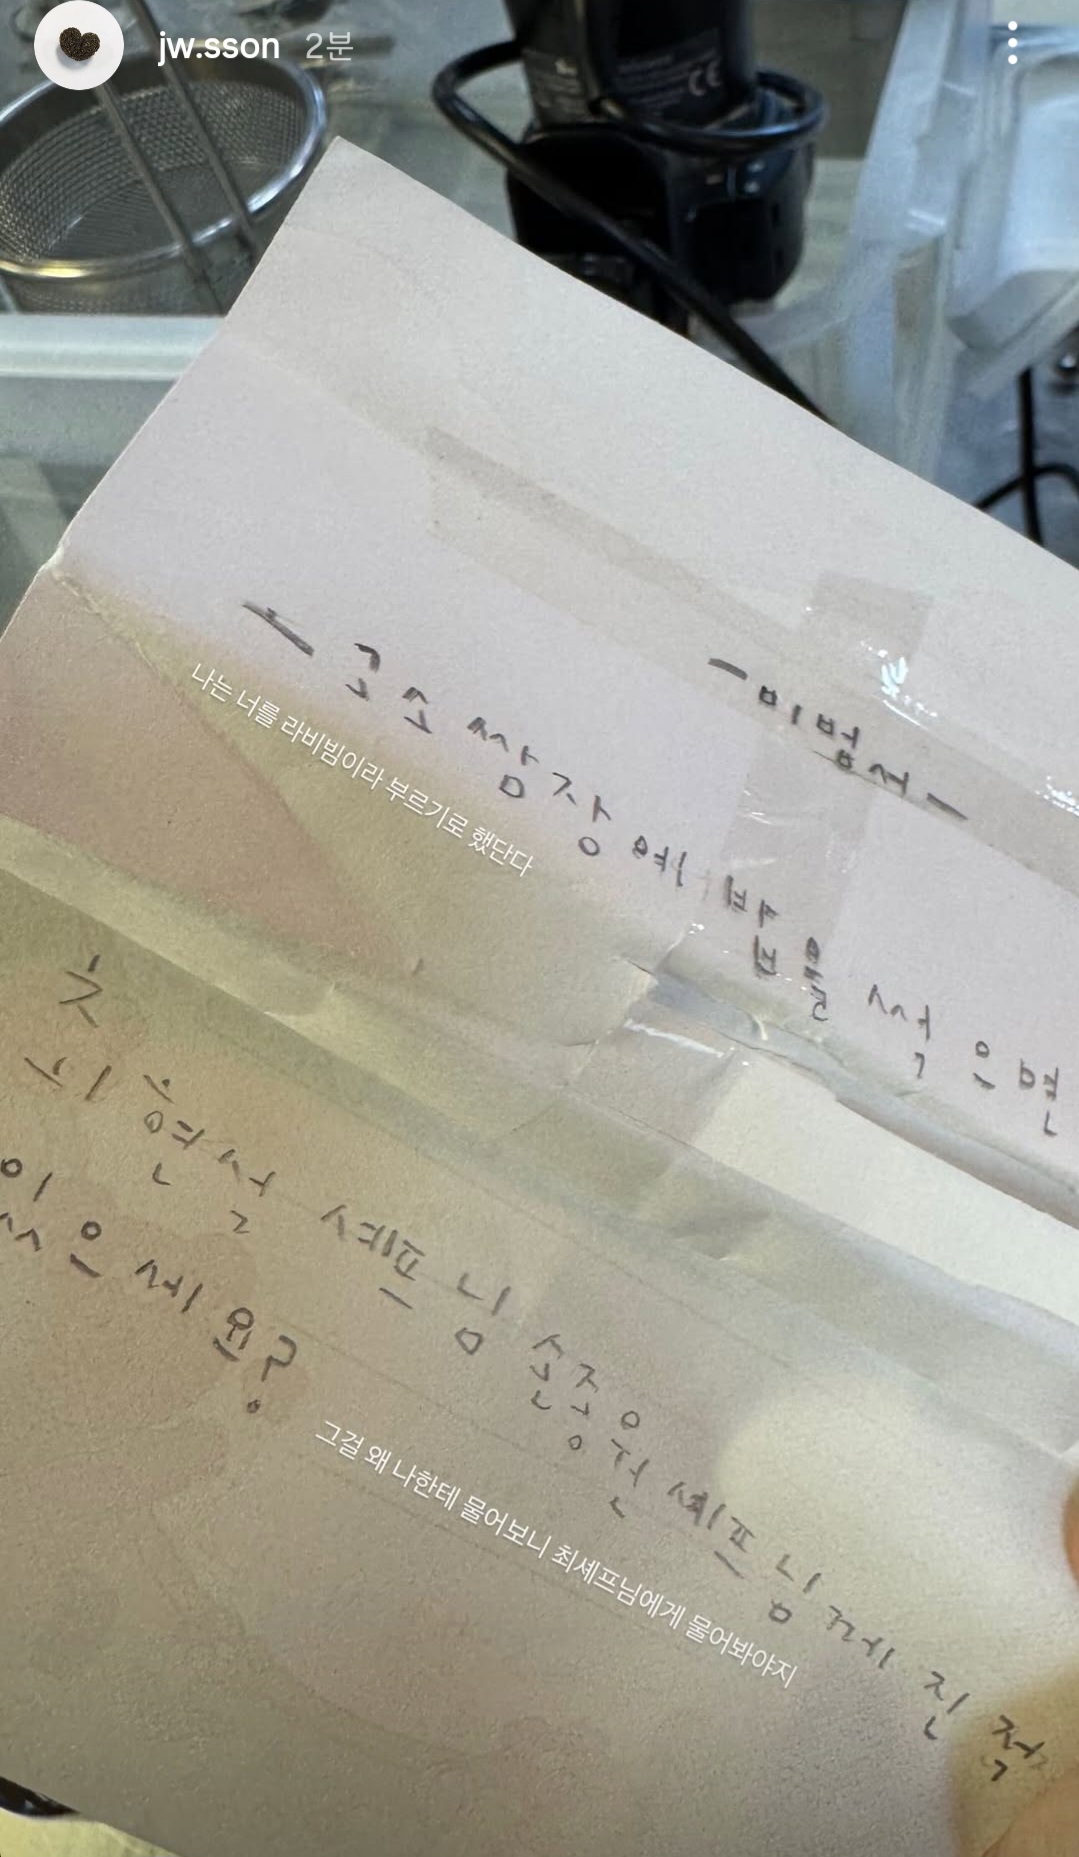 jw.sson 2분
CE
- 비법서 -
고소쌈장에 썩으면
나는 너를 라비빔이라 부르기로 했단다
최현석 셰프님 손종원 셰프님께 진 적
있으세요?
그걸 왜 나한테 물어보니 최셰프님에게 물어봐야지